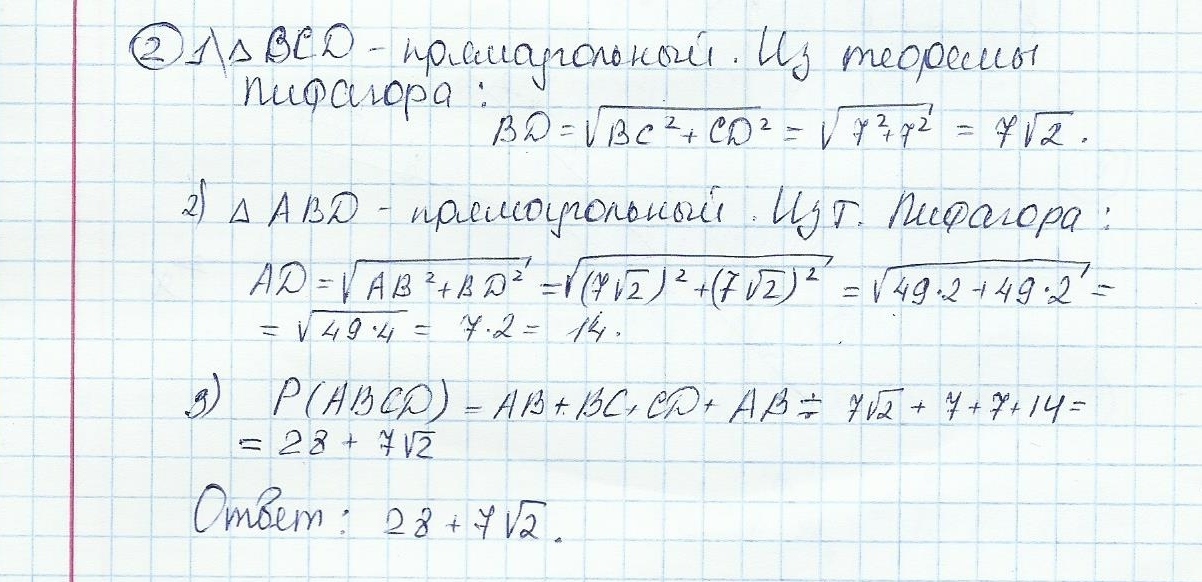 ② 1) △ BCD - прямоугольный. Из теоремы
Пифагора:
BD = √(BC² + CD²) = √(7² + 7²) = 7√2.
2) △ ABD - прямоугольный. Из т. Пифагора:
AD = √(AB² + BD²) = √((7√2)² + (7√2)²) = √(49·2 + 49·2) =
= √(49·4) = 7·2 = 14.
3) P(ABCD) = AB + BC + CD + AB = 7√2 + 7 + 7 + 14 =
= 28 + 7√2
Ответ: 28 + 7√2.